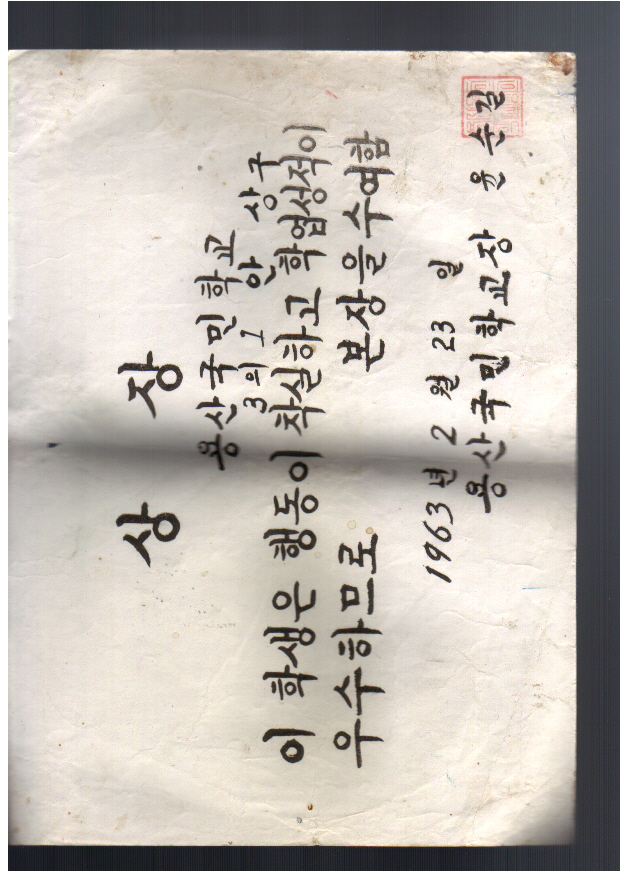 상 장
용산국민학교
3의 1 안 상구
이 학생은 행동이 착실하고 학업성적이
우수하므로 본장을 수여함
1963년 2월 23일
용산국민학교장 윤순길